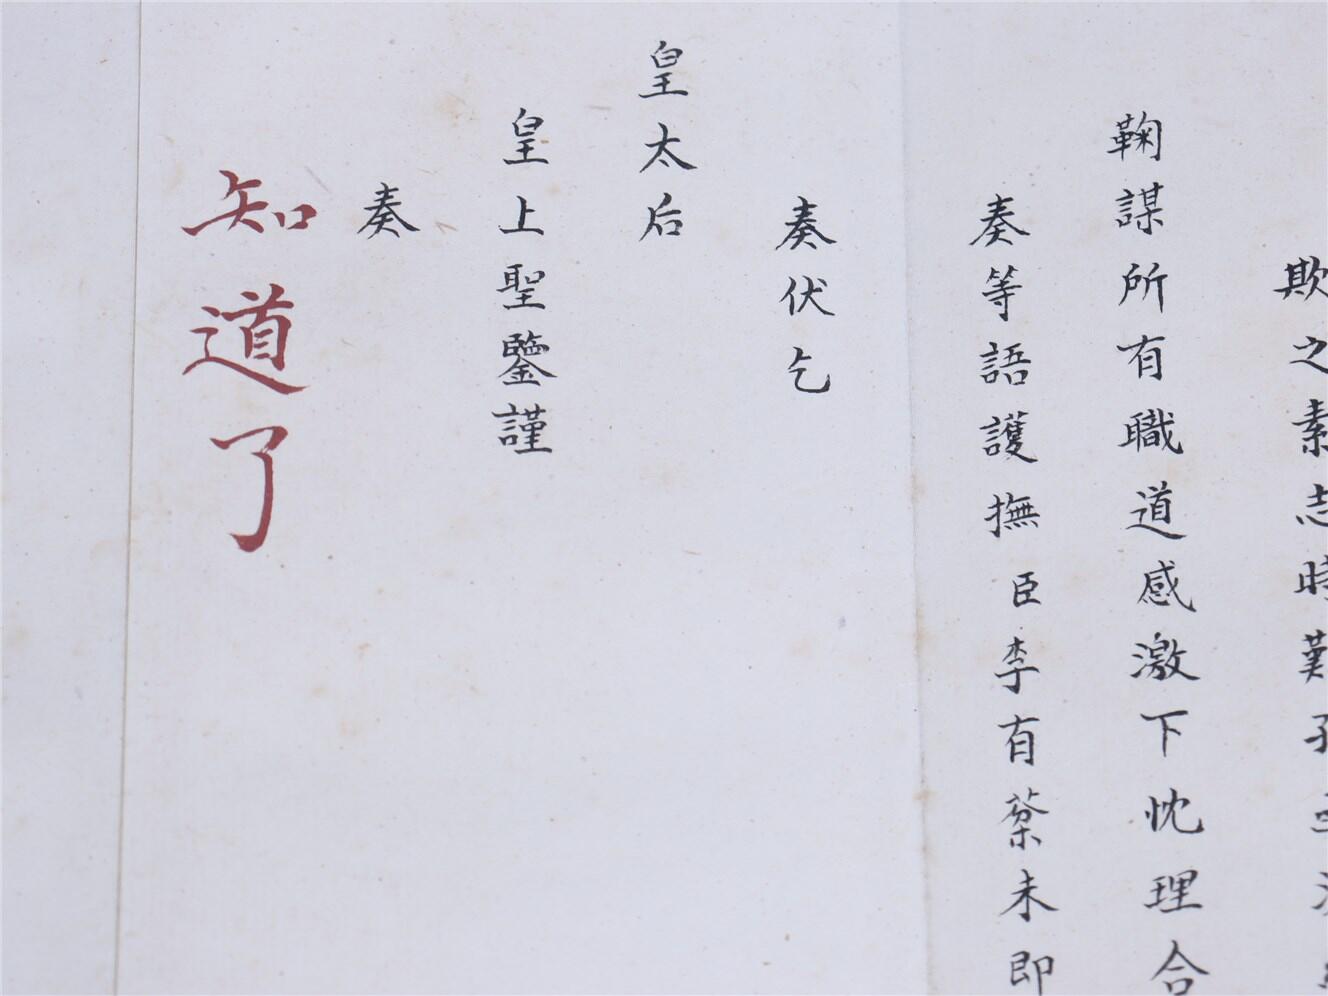 欺之素志時難
鞠謀所有職道感激下忱理合
奏等語護撫臣李有棻未即
奏伏乞
皇太后
皇上聖鑒謹
奏
知道了